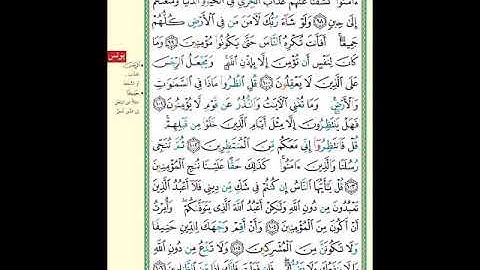 ءَامَنُوا۟ كَشَفْنَا عَنْهُمْ عَذَابَ ٱلْخِزْىِ فِى ٱلْحَيَوٰةِ ٱلدُّنْيَا وَمَتَّعْنَٰهُمْ
إِلَىٰ حِينٍ ٩٨ وَلَوْ شَآءَ رَبُّكَ لَءَامَنَ مَن فِى ٱلْأَرْضِ كُلُّهُمْ
جَمِيعًا ۚ أَفَأَنتَ تُكْرِهُ ٱلنَّاسَ حَتَّىٰ يَكُونُوا۟ مُؤْمِنِينَ ٩٩ وَمَا
كَانَ لِنَفْسٍ أَن تُؤْمِنَ إِلَّا بِإِذْنِ ٱللَّهِ ۚ وَيَجْعَلُ ٱلرِّجْسَ
عَلَى ٱلَّذِينَ لَا يَعْقِلُونَ ١٠٠ قُلِ ٱنظُرُوا۟ مَاذَا فِى ٱلسَّمَٰوَٰتِ
وَٱلْأَرْضِ ۚ وَمَا تُغْنِى ٱلْءَايَٰتُ وَٱلنُّذُرُ عَن قَوْمٍ لَّا يُؤْمِنُونَ ١٠١
فَهَلْ يَنتَظِرُونَ إِلَّا مِثْلَ أَيَّامِ ٱلَّذِينَ خَلَوْا۟ مِن قَبْلِهِمْ ۚ
قُلْ فَٱنتَظِرُوٓا۟ إِنِّى مَعَكُم مِّنَ ٱلْمُنتَظِرِينَ ١٠٢ ثُمَّ نُنَجِّى
رُسُلَنَا وَٱلَّذِينَ ءَامَنُوا۟ ۚ كَذَٰلِكَ حَقًّا عَلَيْنَا نُنجِ ٱلْمُؤْمِنِينَ
١٠٣ قُلْ يَٰٓأَيُّهَا ٱلنَّاسُ إِن كُنتُمْ فِى شَكٍّ مِّن دِينِى فَلَآ أَعْبُدُ ٱلَّذِينَ
تَعْبُدُونَ مِن دُونِ ٱللَّهِ وَلَٰكِنْ أَعْبُدُ ٱللَّهَ ٱلَّذِى يَتَوَفَّىٰكُمْ ۖ وَأُمِرْتُ
أَنْ أَكُونَ مِنَ ٱلْمُؤْمِنِينَ ١٠٤ وَأَنْ أَقِمْ وَجْهَكَ لِلدِّينِ حَنِيفًا
وَلَا تَكُونَنَّ مِنَ ٱلْمُشْرِكِينَ ١٠٥ وَلَا تَدْعُ مِن دُونِ ٱللَّهِ
مَا لَا يَنفَعُكَ وَلَا يَضُرُّكَ ۖ فَإِن فَعَلْتَ فَإِنَّكَ إِذًا مِّنَ ٱلظَّٰلِمِينَ ١٠٦
يونس
الرجس
حنيفا